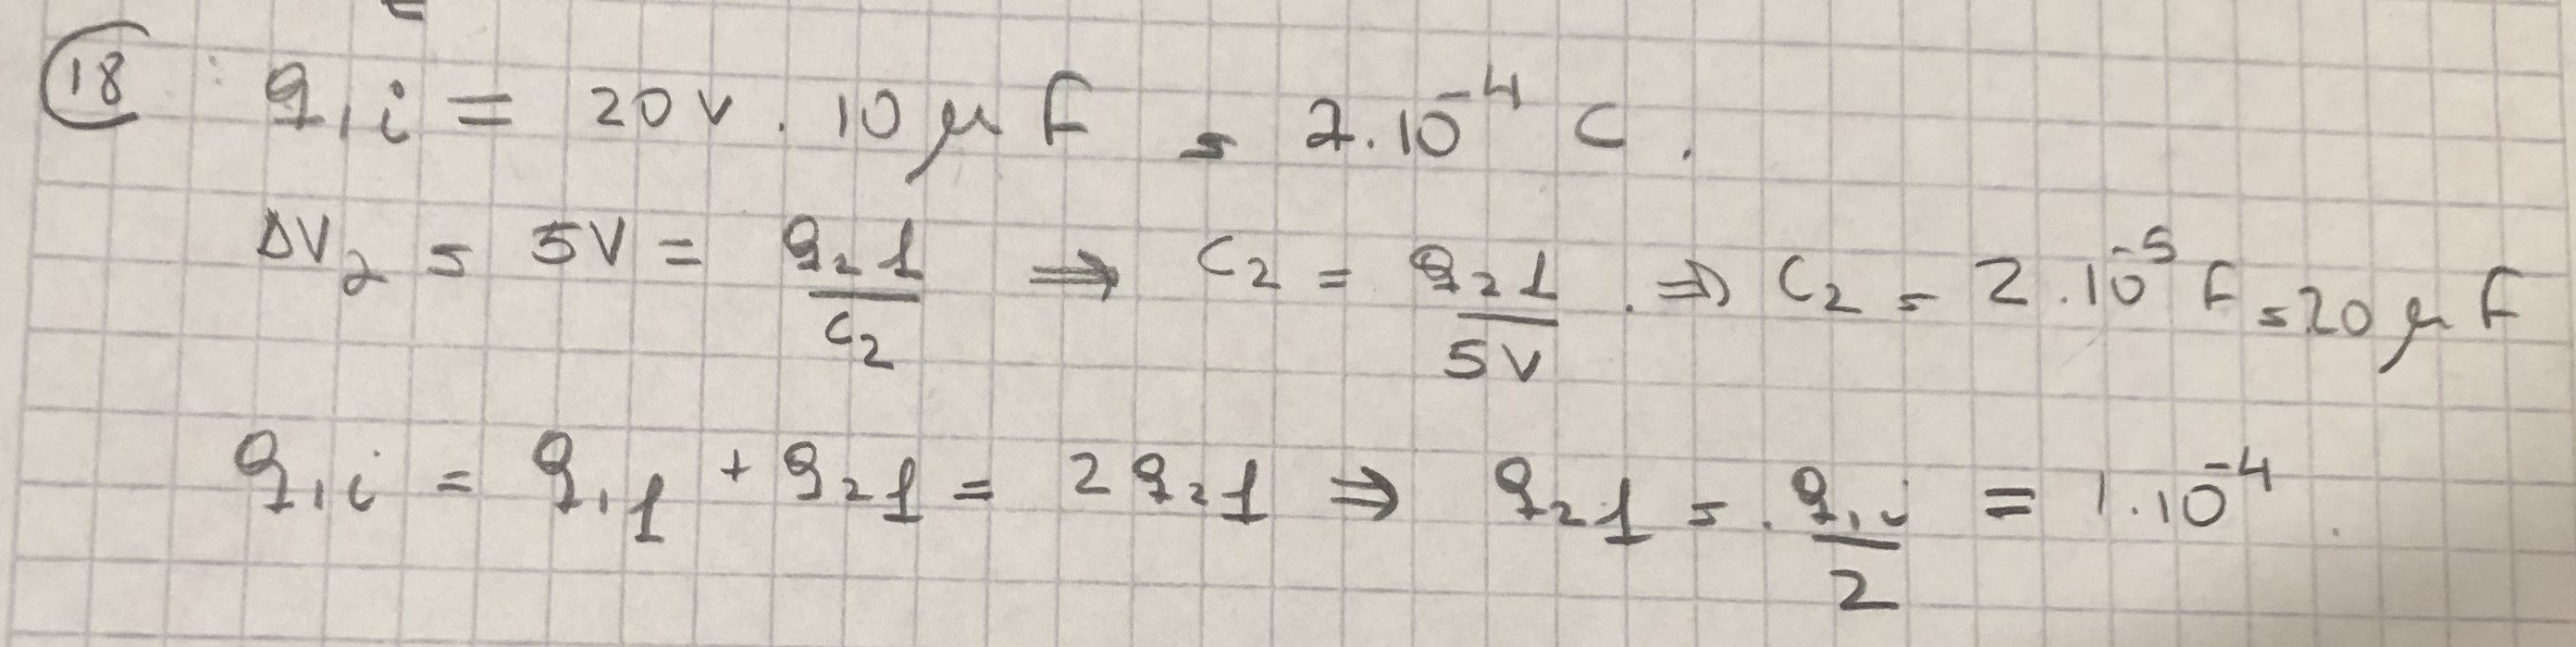 18 : q₁i = 20V . 10 μF = 2.10⁻⁴ C .
ΔV₂ = 5V = q₂f / C₂ ⇒ C₂ = q₂f / 5V . ⇒ C₂ = 2.10⁻⁵ F = 20 μF
q₁i = q₁f + q₂f = 2 q₂f ⇒ q₂f = . q₁i / 2 = 1.10⁻⁴ .